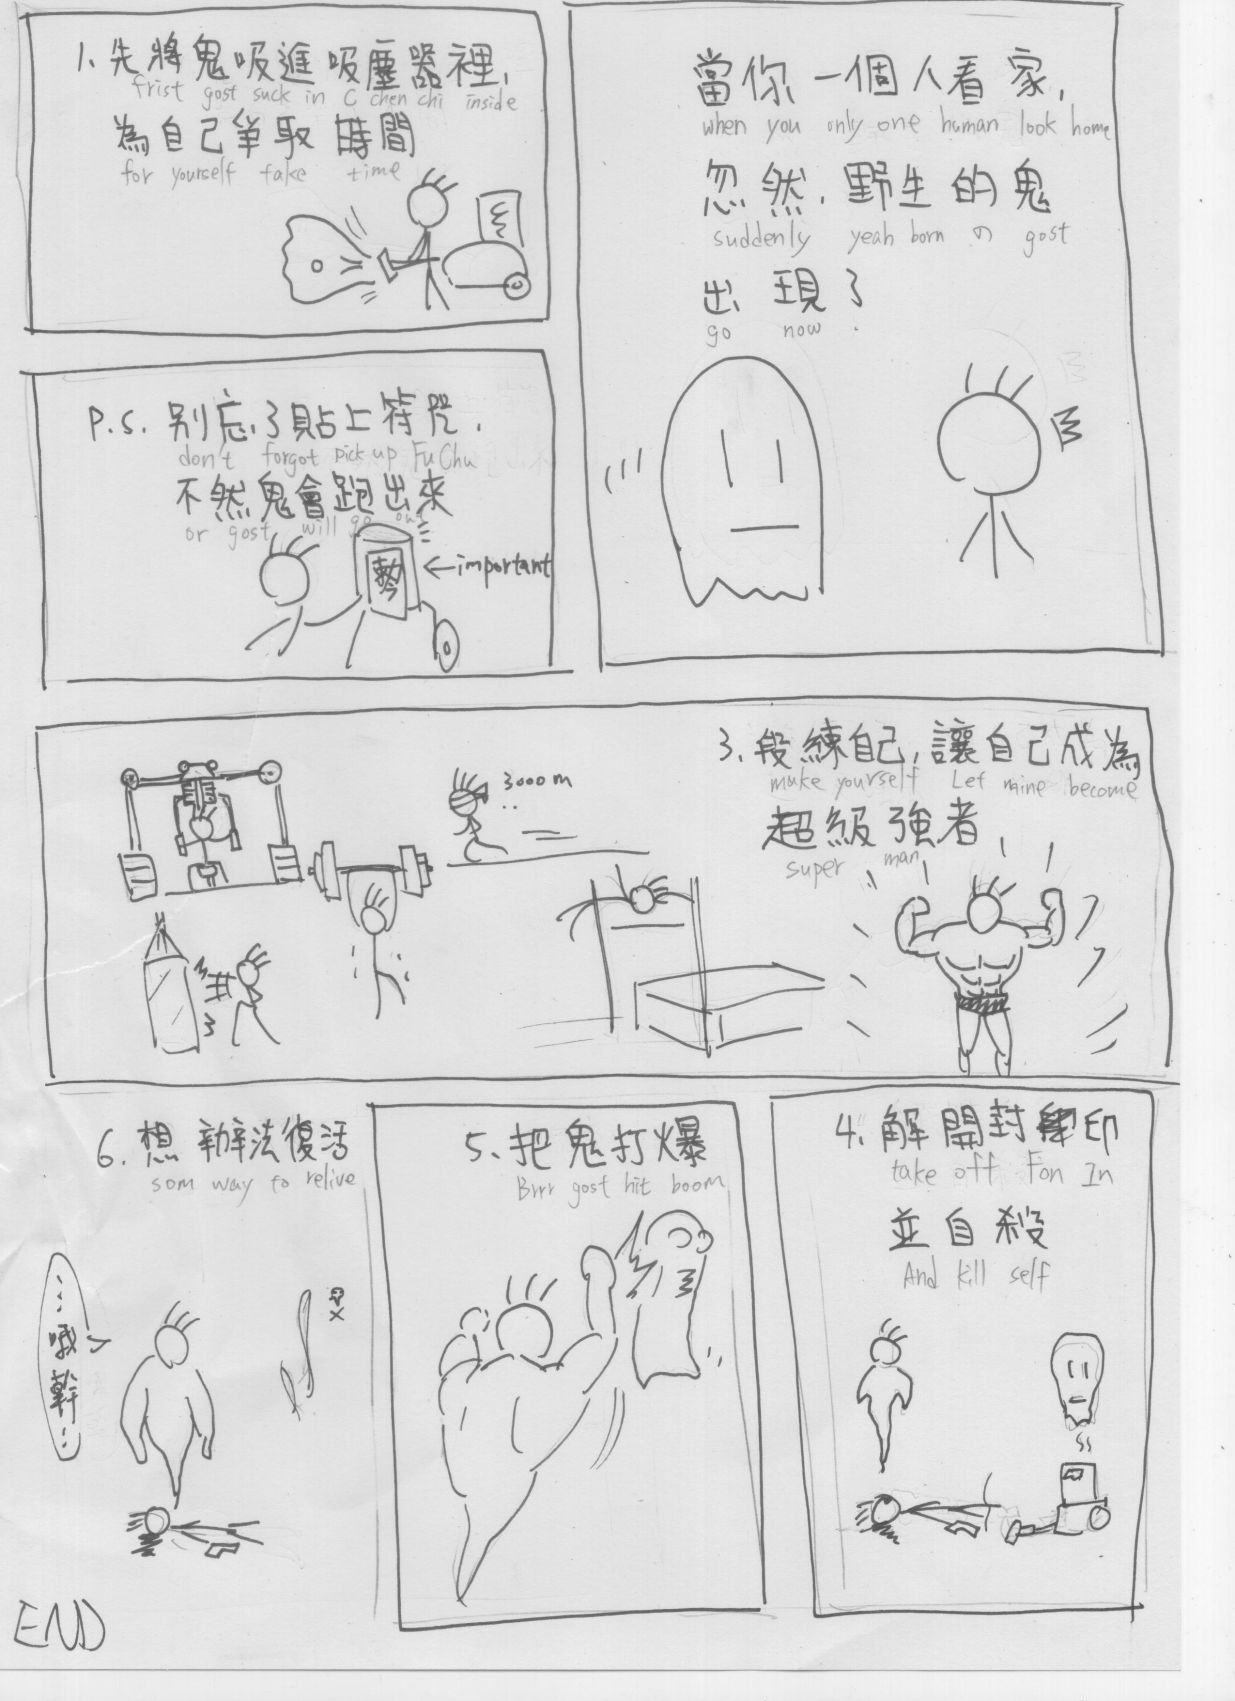 當你一個人看家,
when you only one human look home
忽然,野生的鬼
suddenly yeah born の gost
出現了
go now.
1.先將鬼吸進吸塵器裡,
frist gost suck in C chen chi inside
為自己爭取時間
for yourself take time
P.S.別忘了貼上符咒,
don't forgot pick up Fu Chu
不然鬼會跑出來
or gost will go out
←important
3.段練自己,讓自己成為
make yourself Let mine become
超級強者,
super man
3000m
4.解開封印
take off Fon In
並自殺
And kill self
5.把鬼打爆
Brrr gost hit boom
6.想辦法復活
som way to relive
⋯哦幹⋯
END